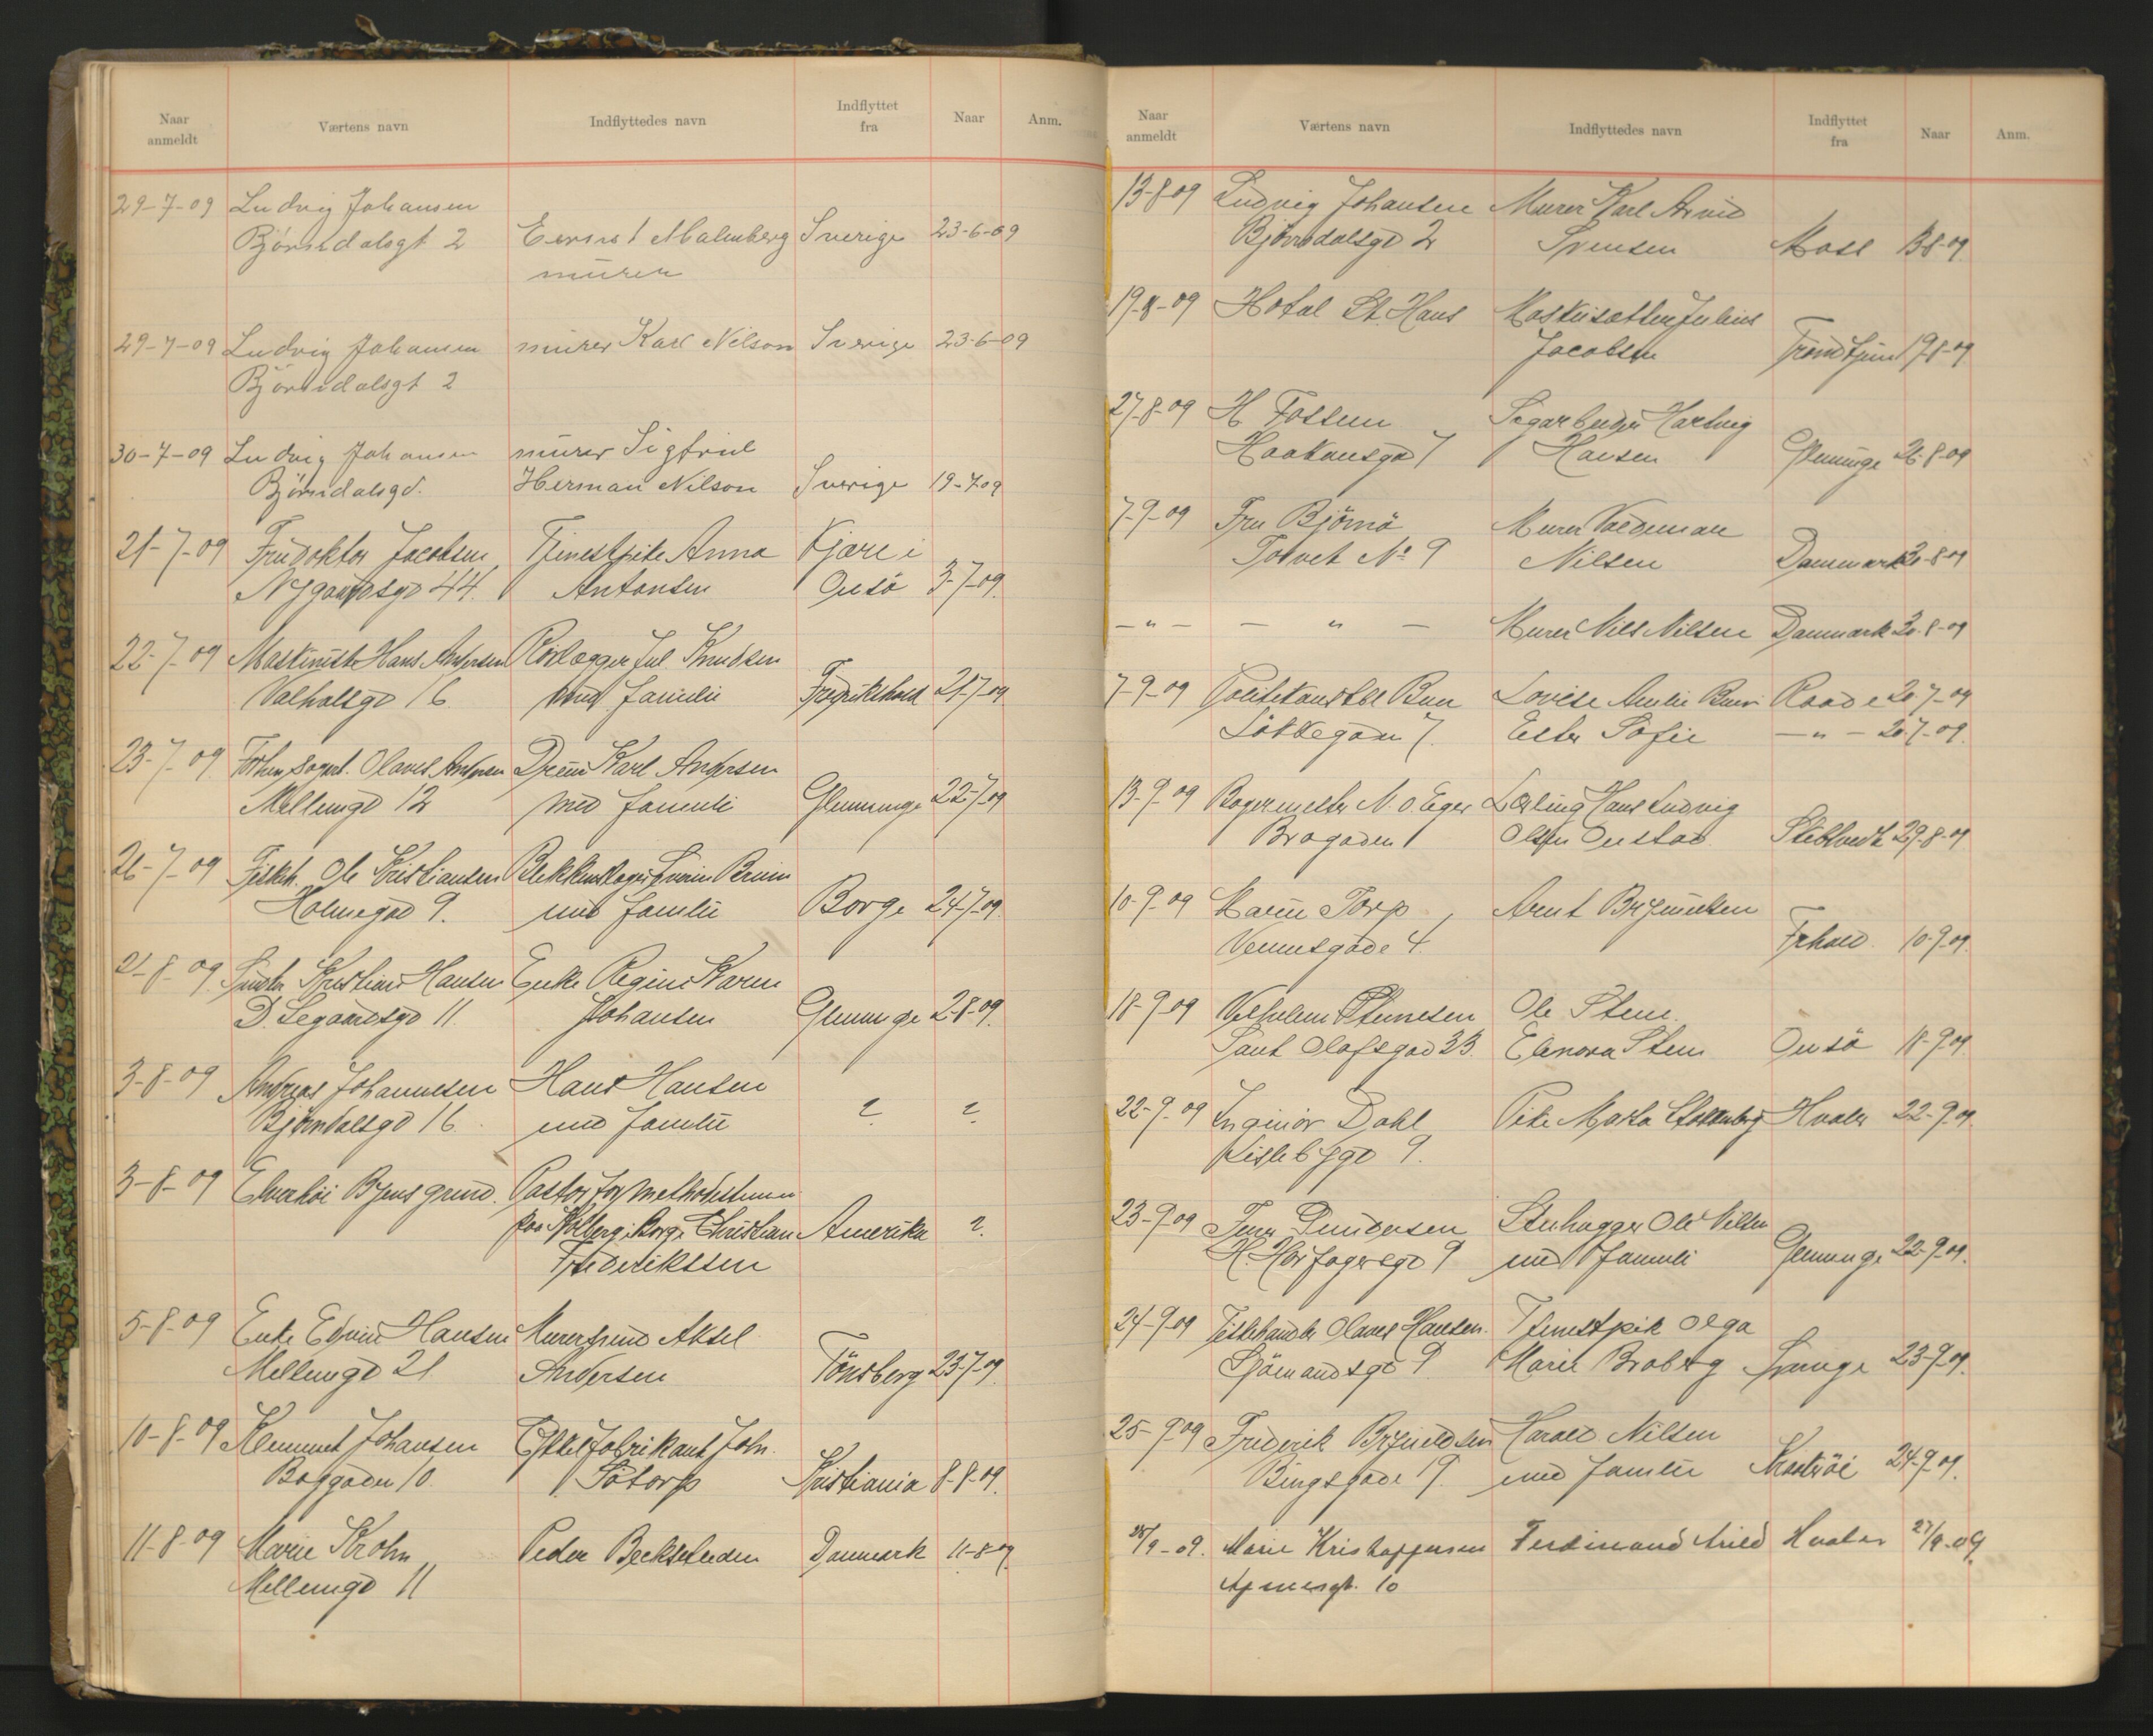 Naar anmeldt Værtens navn Indflyttedes navn Indflyttet fra Naar Anm.
29-7-09 Ludvig Johansen
Björndalsgt 2 Malmberg Sverige 23-6-09
murer
29-7-09 Ludvig Johansen murer Karl Nilson Sverige 23-6-09
Björndalsgt 2
30-7-09 Ludvig Johansen murer Sigfrid
Björndalsgd. Herman Nilson Sverige 19-7-09
21-7-09 Frudoktor Jacobsen Tjenestpike Anna Kjære i
Nygaardsgd 44. Antonsen Onsö 3-7-09.
22-7-09 Maskinist Hans Andersen Rörlægger Jul. Knudsen
Valhalsgd 16. med familie Fredrikshald 21-7-09
23-7-09 Olaves Andersen Karl Andersen
Mellemgd 12 med familie Glemminge 22-7-09
26-7-09 Ole Kristiansen
Holmegad 9. med familie Borge 24-7-09.
2-8-09. Kristian Hansen Enke Karen
11. Johansen Glemminge 2-8-09.
3-8-09 Andreas Johannesen Hans Hansen
Björndalsgd 16. med familie ? ?
3-8-09 Pastor for
Borge Christian Amerika ?
Frederikssen
5-8-09 Enke Hansen Aksel
Mellemgd 21 Andersen Tönsberg 23-7-09.
10-8-09 Klemmet Johansen Joh.
10. Sötorp Kristiania 8-8-09.
11-8-09 Marie Krohn Peder Danmark 11-8-09.
Mellemgd 11
Naar anmeldt Værtens navn Indflyttedes navn Indflyttet fra Naar Anm.
13-8-09 Ludvig Johansen Murer Karl Arvid
Björndalsgd 2 Svensen Moss 13-8-09.
19-8-09 Hotel St. Hans Julius
Jacobsen Trondhjem 19-8-09
27-8-09 H Fossum Hartvig
Haakonsgd 7 Hansen Glemminge 26-8-09
7-9-09 Fru Björnö Murer Valdemar
Torvet No 9 Nilsen Danmark 30-8-09
-"- - " - Murer Nils Nilsen Danmark 30-8-09
7-9-09 Bun Lovise Raade 20-7-09
7. Ester Sofie -"- 20-7-09.
13-9-09 Bagermester N. O. Eger Lærling Hans Ludvig
Brogaden 1 Olsen Onstad 29-8-09
10-9-09 Torp Arnt Brynildsen
Venusgade 4. Frhald 10-9-09.
18-9-09 Vilhelm Ole Sten.
Sant Olafsgad 33. Elenora Sten Onsö 18-9-09
22-9-09 Ingeniör Dahl Pike Marta Hvaler 22-9-09.
9.
23-9-09 Stenhugger Ole Nilsen
H. Harfagersgd 9 med familie Glemminge 22-9-09.
24-9-09 Fiskehandler Olaves Hansen. Tjenestpik Olga
Sjömandsgd 9 Marie Broberg 23-9-09.
25-9-09 Frederik Brynildsen Harald Nilsen
19. med familie 24-9-09.
28/9-09. Marie Kristoffersen Ferdinand Arild Hvaler 27/9-09
10